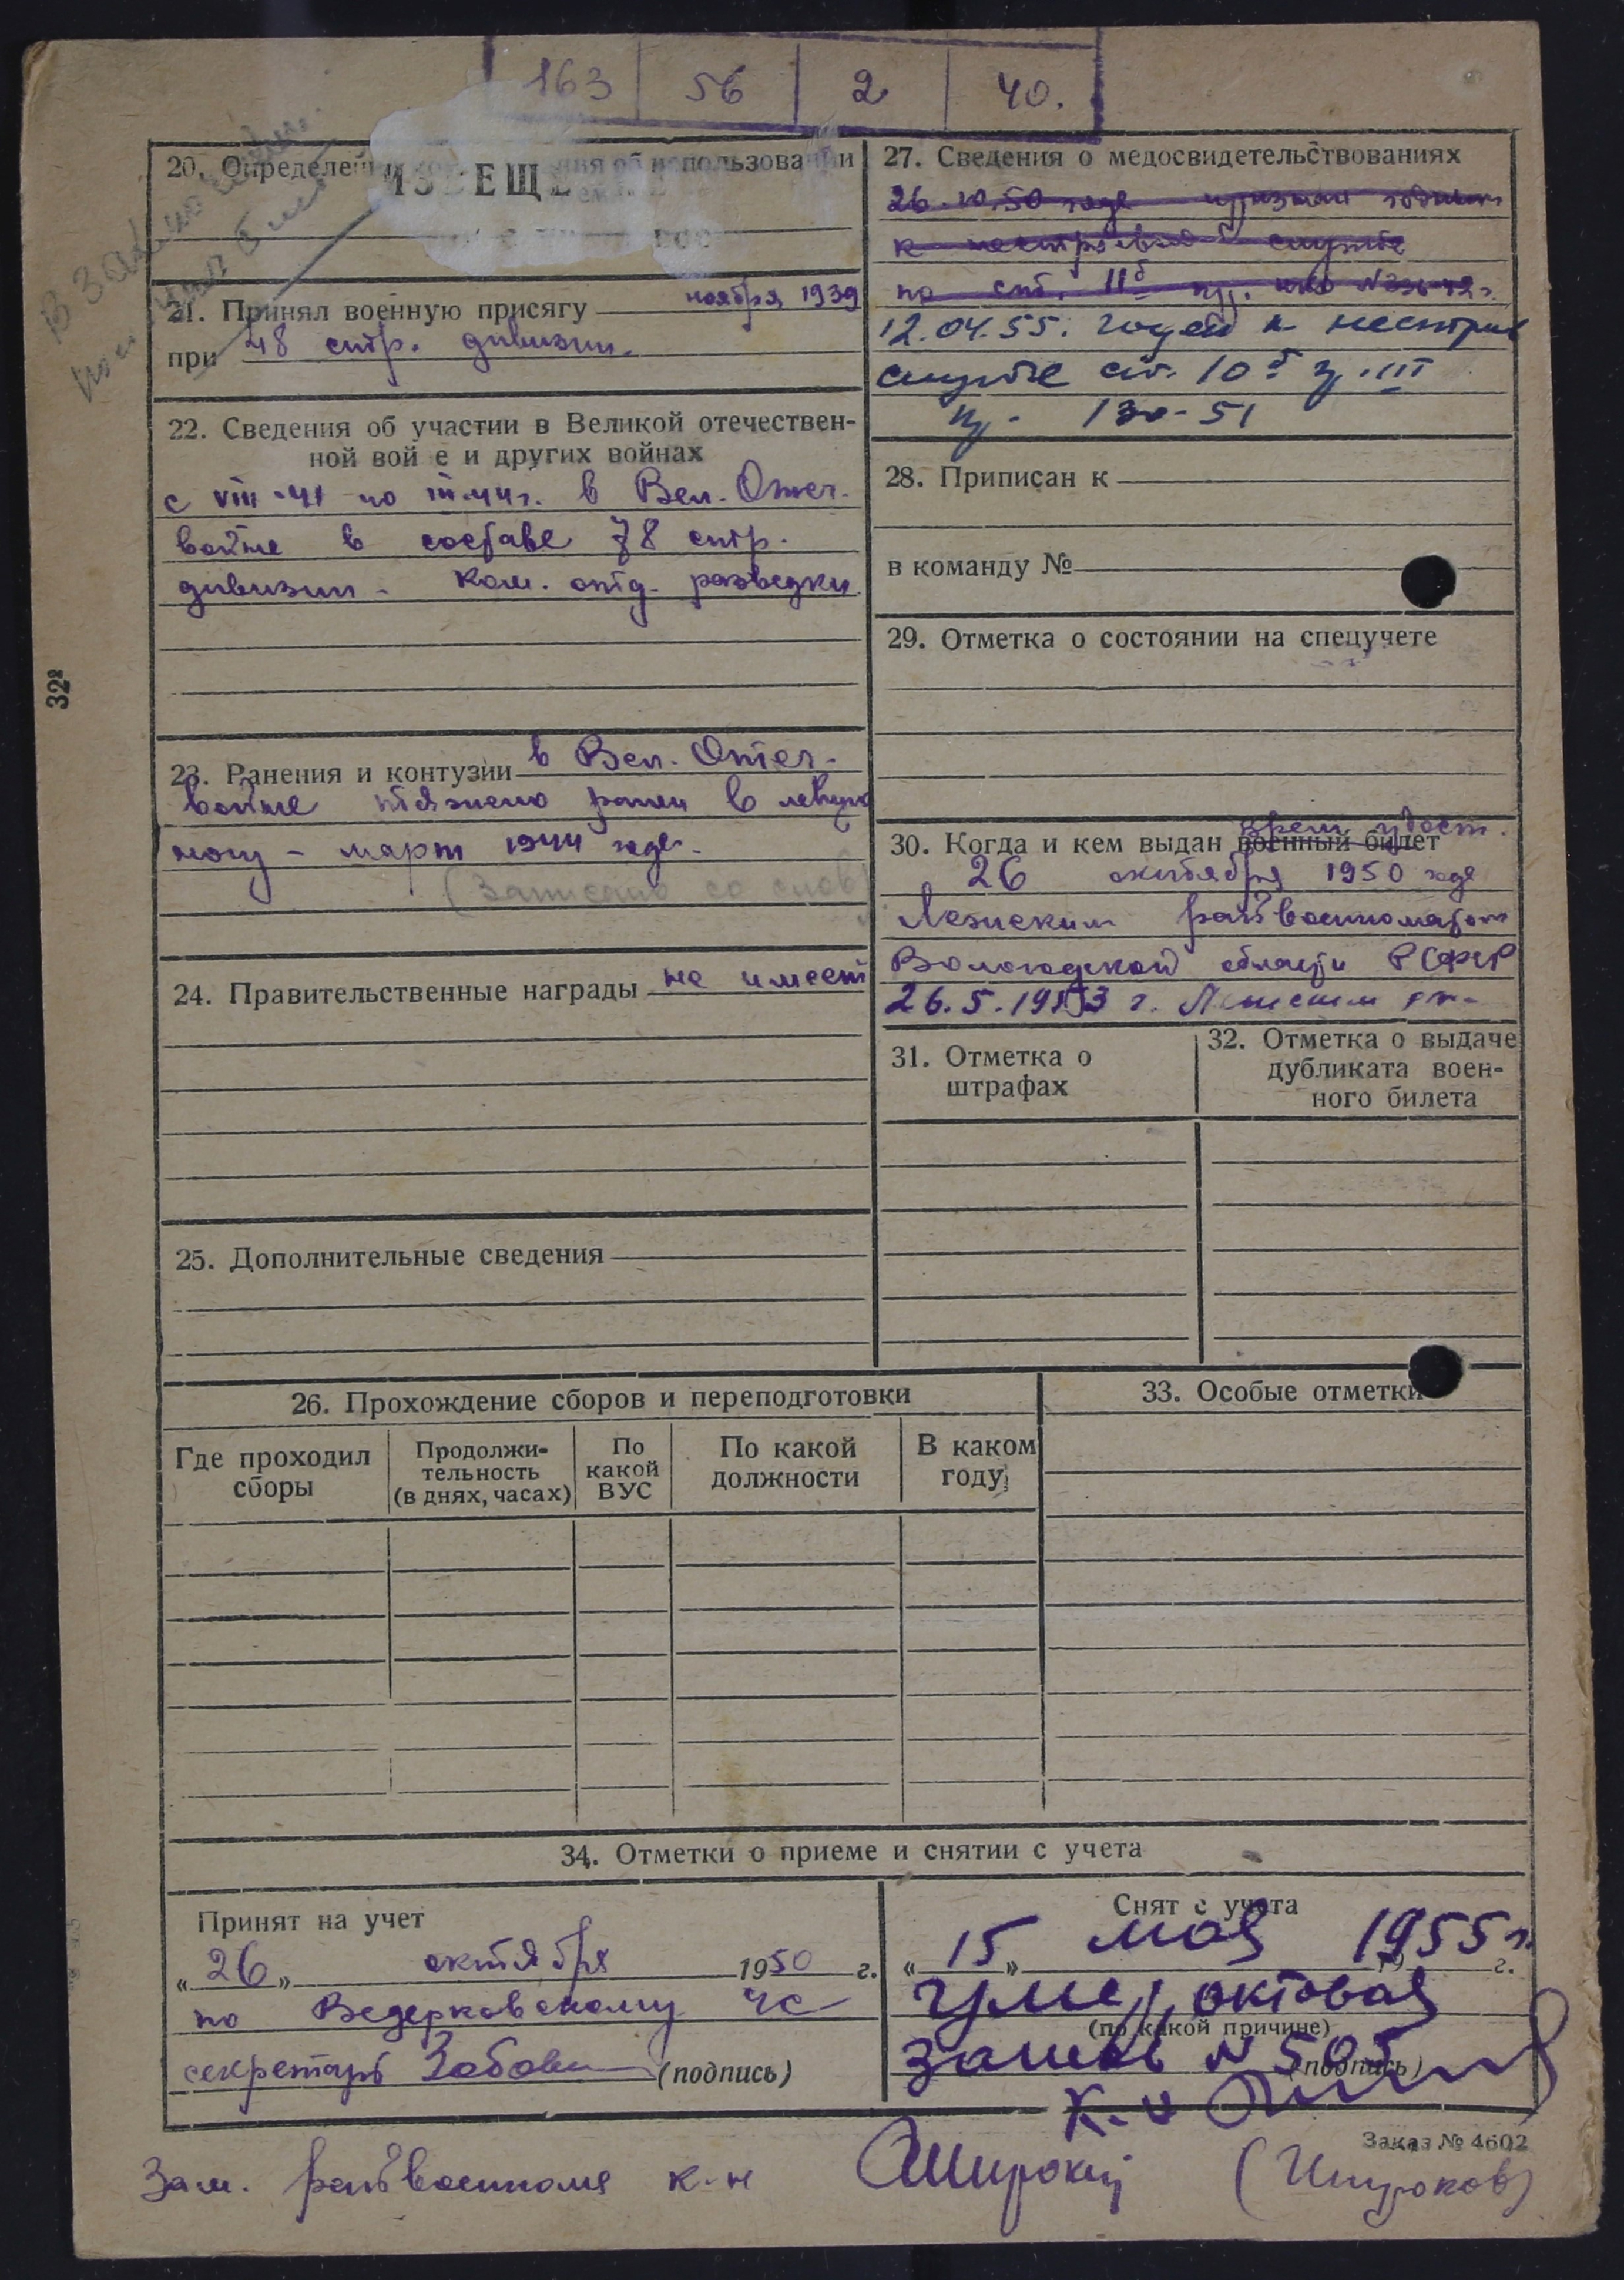 163 56 2 40.
20. Определен ния об использовании
ИЗВЕЩЕ
21. Принял военную присягу ноября 1939
при 48 стр. дивизии.
22. Сведения об участии в Великой отечествен-
ной вой е и других войнах
с VIII-41 по III-44 г. в Вел. Отеч.
войне в составе 78 стр.
дивизии - Ком. отд. разведки
23. Ранения и контузии в Вел. Отеч.
войне тяжело ранен в левую
ногу - март 1944 года.
(Записано со слов)
24. Правительственные награды не имеет
25. Дополнительные сведения
27. Сведения о медосвидетельствованиях
26.10.50 года признан годным
к нестроевой службе
по ст. IIб пр.
12.04.55. годен к нестроев
службе ст. 10б гр. III
пр. 130-51
28. Приписан к
в команду №
29. Отметка о состоянии на спецучете
врем. удост.
30. Когда и кем выдан военный билет
26 октября 1950 года
Лежским райвоенкоматом
Вологодской области РСФСР
26.5.1953 г. Лежским
31. Отметка о
штрафах
32. Отметка о выдаче
дубликата воен-
ного билета
26. Прохождение сборов и переподготовки
Где проходил
сборы
Продолжи-
тельность
(в днях, часах)
По
какой
ВУС
По какой
должности
В каком
году
33. Особые отметки
34. Отметки о приеме и снятии с учета
Принят на учет
„26„ октября 1950 г.
по Ведерковскому ус
секретарь (подпись)
Снят с учета
„15" мая 1955 г.
умер, актовая
(по какой причине)
запись № 505
(подпись)
к-н
Заказ № 4602
Зам. райвоенкома к-н Широков (Широков)
32ª